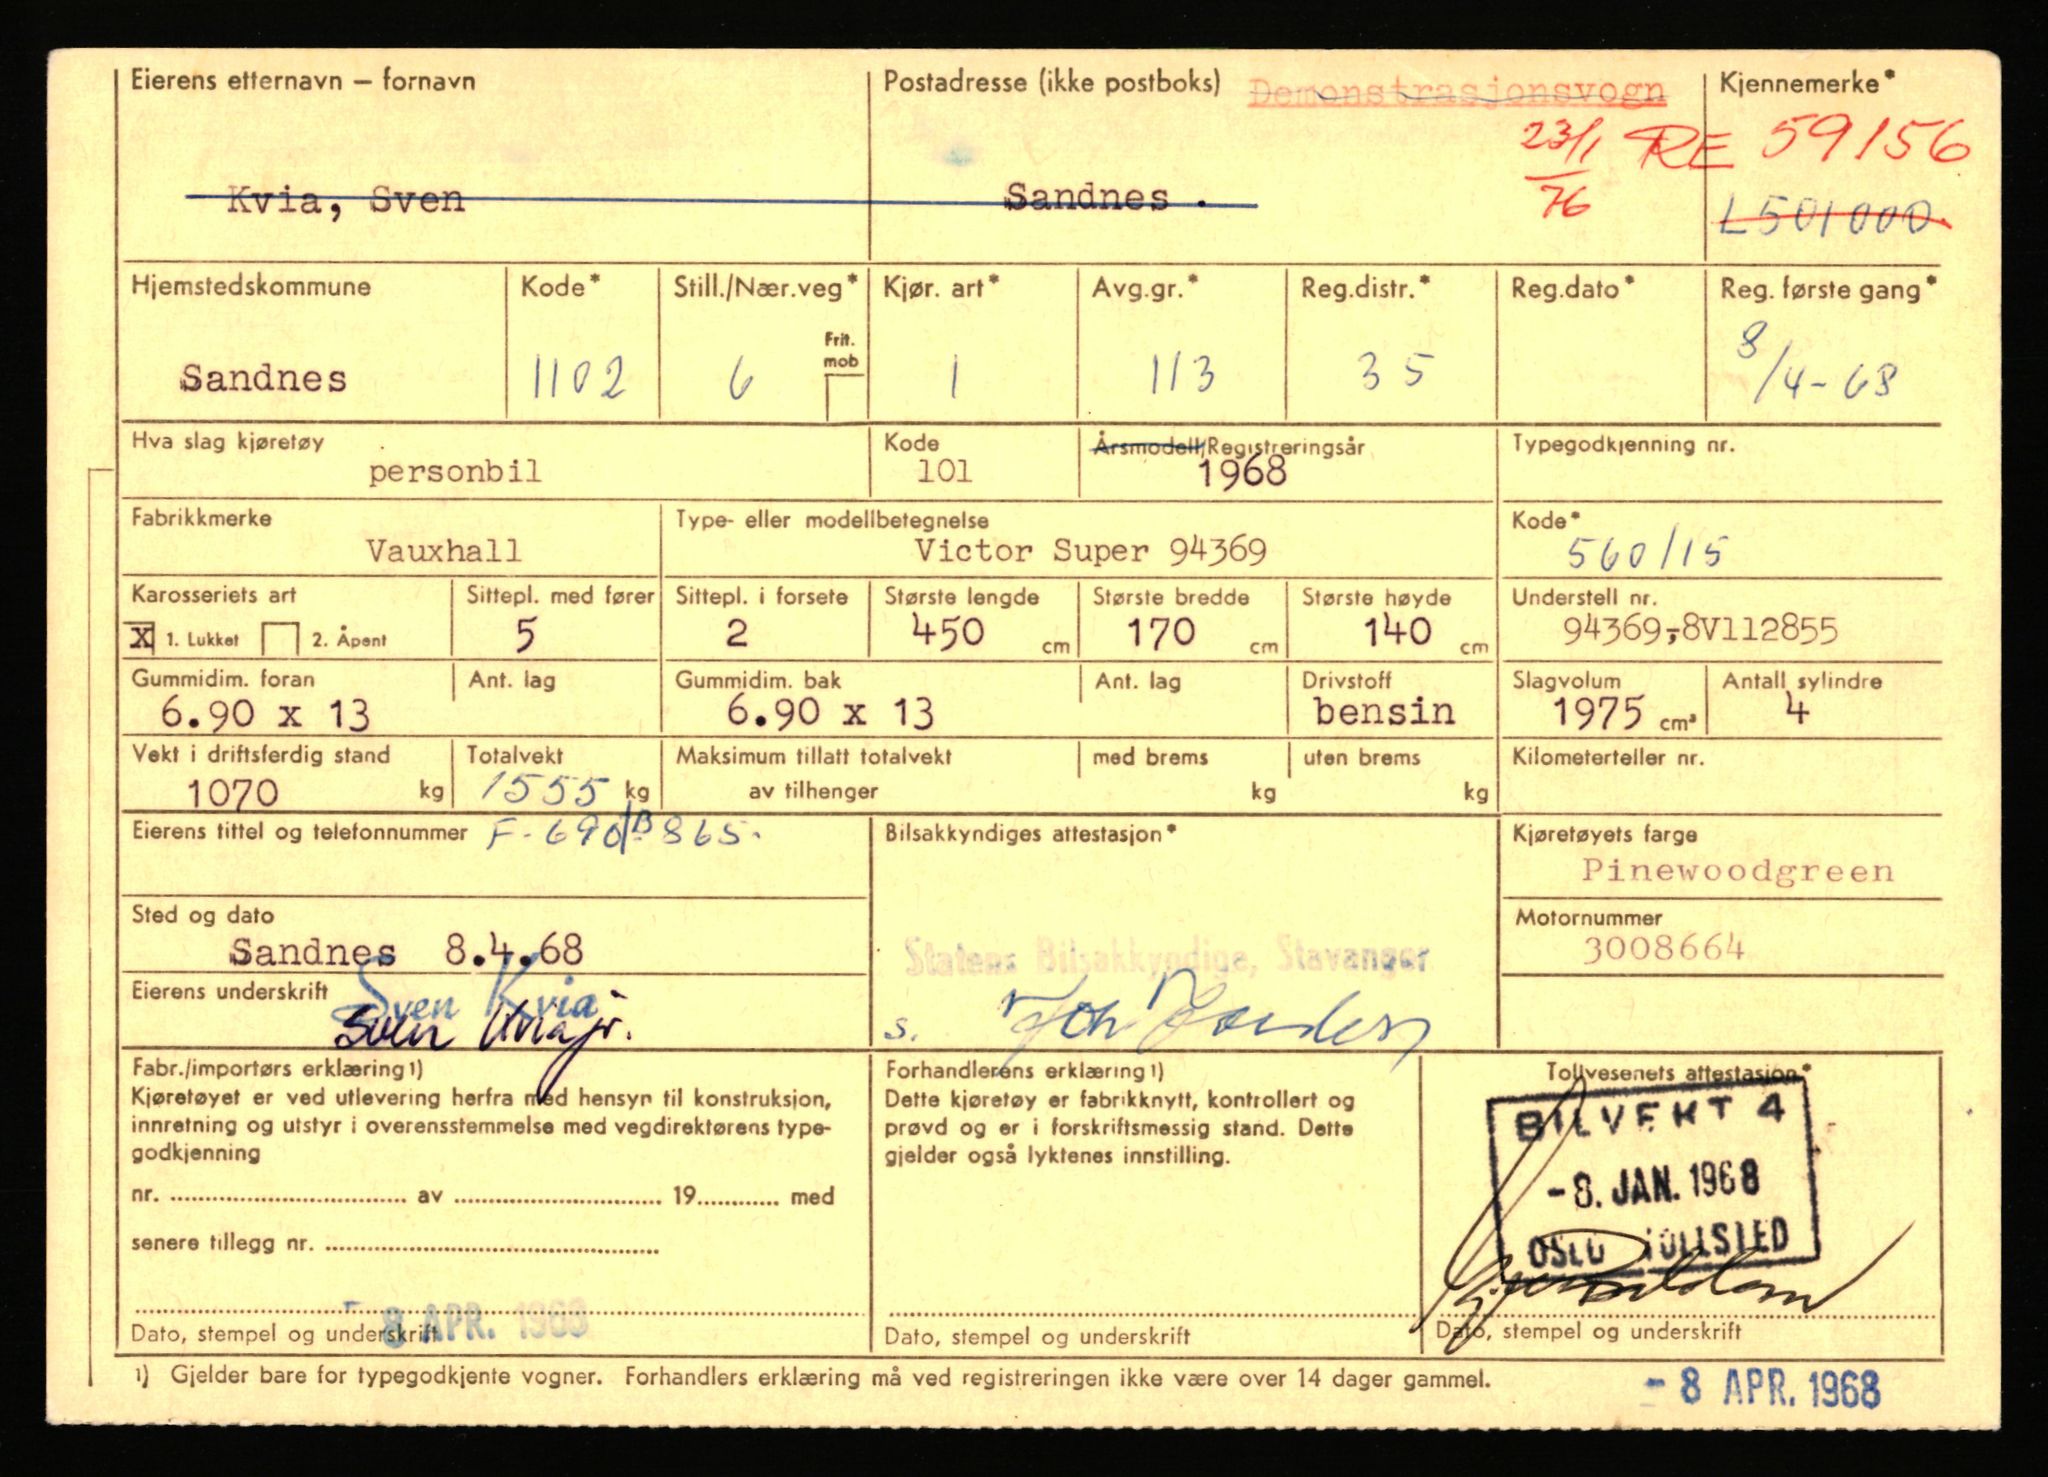 Eierens etternavn – fornavn Postadresse (ikke postboks) Demonstrasjonsvogn Kjennemerke*
23/1 76 RE 59156
Kvia, Sven Sandnes . L 501000
Hjemstedskommune Kode* Still./Nær.veg* Kjør. art* Avg.gr.* Reg.distr.* Reg.dato* Reg. første gang*
Frit. mob
Sandnes 1102 6 1 113 35 8/4-68
Hva slag kjøretøy Kode Årsmodell/Registreringsår Typegodkjenning nr.
personbil 101 1968
Fabrikkmerke Type- eller modellbetegnelse Kode*
Vauxhall Victor Super 94369 560/15
Karosseriets art Sittepl. med fører Sittepl. i forsete Største lengde Største bredde Største høyde Understell nr.
X 1. Lukket 2. Åpent 5 2 450 cm 170 cm 140 cm 94369,-8V112855
Gummidim. foran Ant. lag Gummidim. bak Ant. lag Drivstoff Slagvolum Antall sylindre
6.90 x 13 6.90 x 13 bensin 1975 cm³ 4
Vekt i driftsferdig stand Totalvekt Maksimum tillatt totalvekt med brems uten brems Kilometerteller nr.
1070 kg 1555 kg av tilhenger kg kg
Eierens tittel og telefonnummer F-690/B-865. Bilsakkyndiges attestasjon* Kjøretøyets farge
Pinewoodgreen
Sted og dato Motornummer
Sandnes 8.4.68 Statens Bilsakkyndige, Stavanger 3008664
Eierens underskrift Sven Kvia
Sven Kvia jr. s.
Fabr./importørs erklæring 1) Forhandlerens erklæring 1) Tollvesenets attestasjon*
Kjøretøyet er ved utlevering herfra med hensyn til konstruksjon, Dette kjøretøy er fabrikknytt, kontrollert og BILVEKT 4
innretning og utstyr i overensstemmelse med vegdirektørens type- prøvd og er i forskriftsmessig stand. Dette
godkjenning gjelder også lyktenes innstilling.
nr. av 19 med -8. JAN. 1968
senere tillegg nr. OSLO TOLLSTED
- 8 APR. 1968
Dato, stempel og underskrift Dato, stempel og underskrift Dato, stempel og underskrift
1) Gjelder bare for typegodkjente vogner. Forhandlers erklæring må ved registreringen ikke være over 14 dager gammel. - 8 APR. 1968